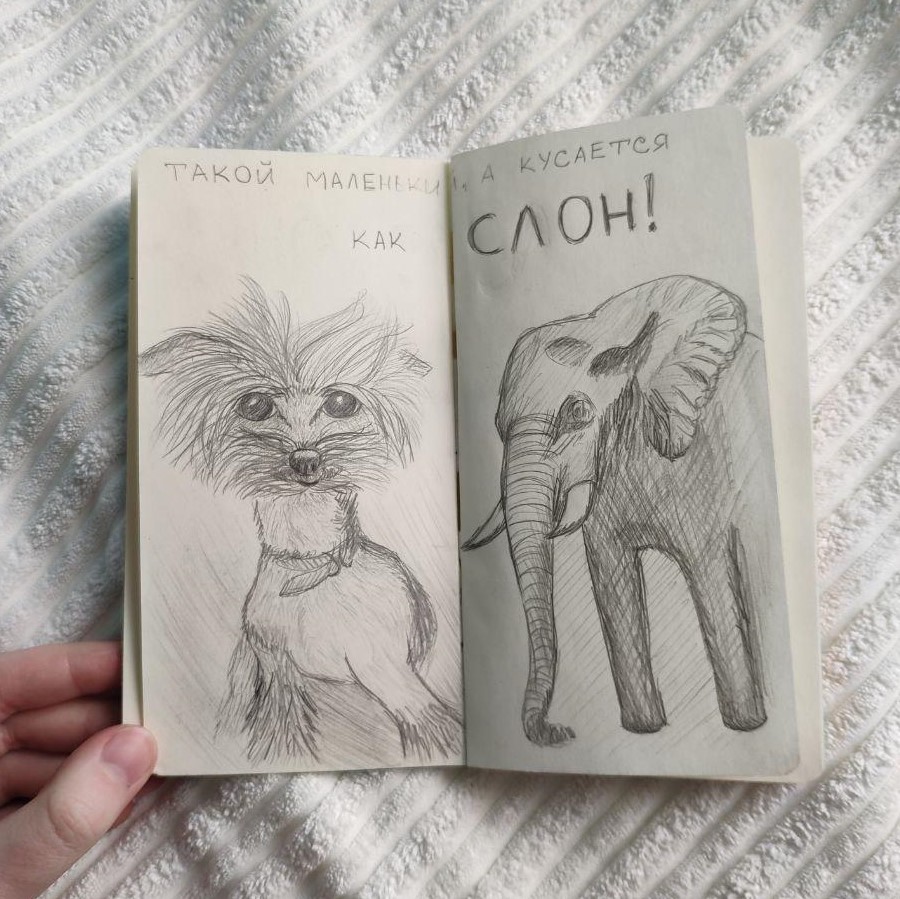 ТАКОЙ МАЛЕНЬКИЙ, А КУСАЕТСЯ
КАК СЛОН!